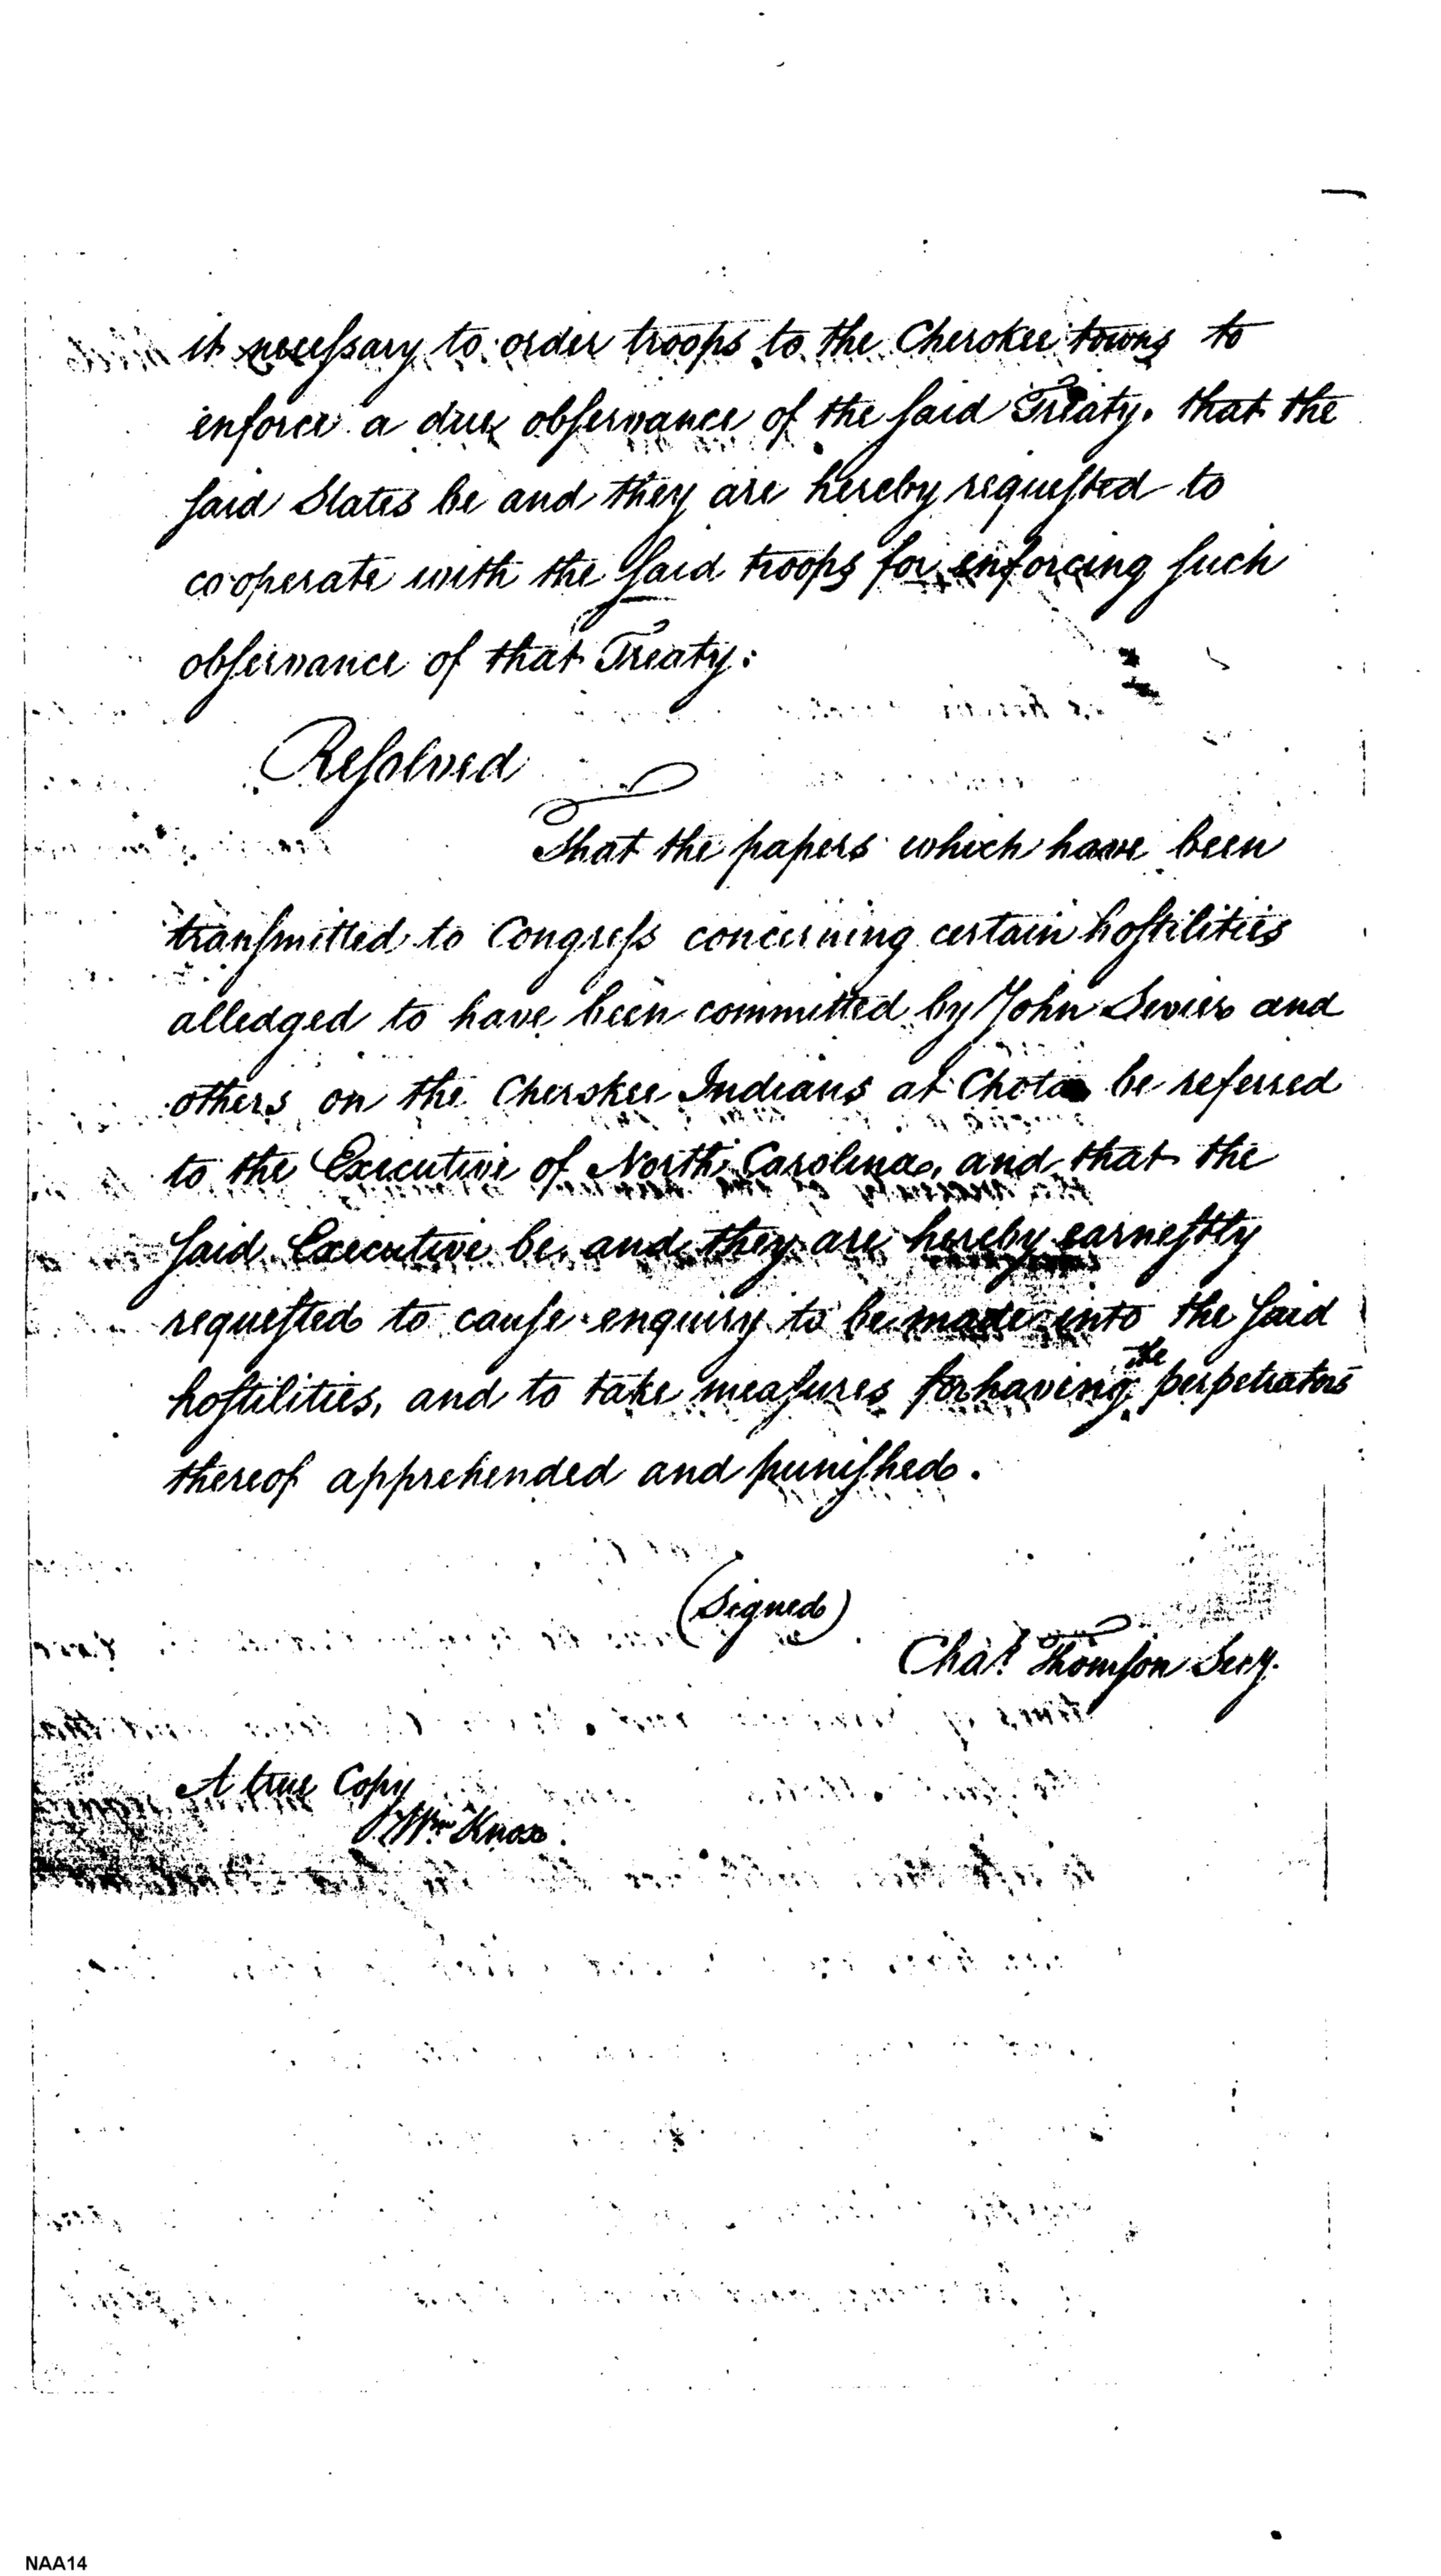 it necessary to order troops to the Cherokee towns to
enforce a due observance of the said Treaty. that the
said States be and they are hereby requested to
cooperate with the said troops for enforcing such
observance of that Treaty:
Resolved
That the papers which have been
transmitted to Congress concerning certain hostilities
alledged to have been committed by John Sevier and
others on the Cherokee Indians at Chota be referred
to the Executive of North Carolina, and that the
said Executive be, and they are hereby earnestly
requested to cause enquiry to be made into the said
hostilities, and to take measures for having the perpetrators
thereof apprehended and punished.
(Signed)
Chas. Thomson Secy.
A true Copy
Wm Knox.
NAA14